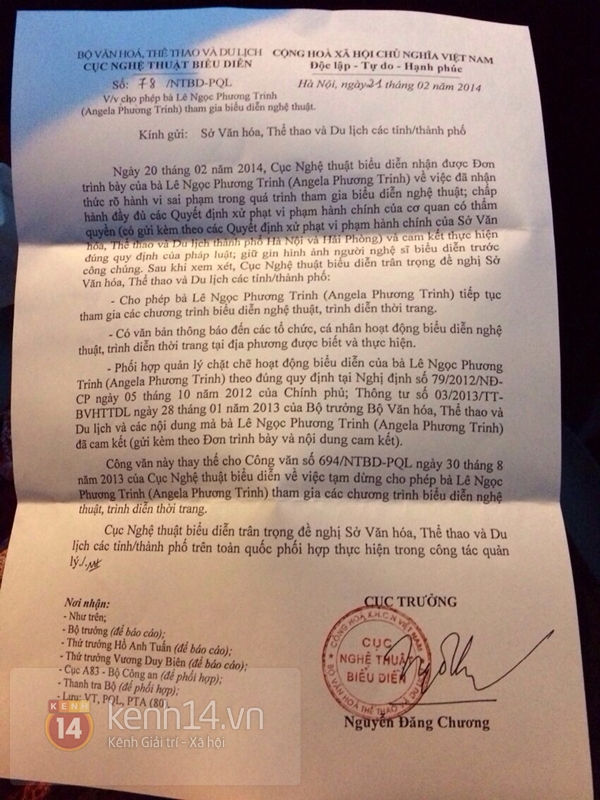 BỘ VĂN HOÁ, THỂ THAO VÀ DU LỊCH
CỤC NGHỆ THUẬT BIỂU DIỄN
CỘNG HOÀ XÃ HỘI CHỦ NGHĨA VIỆT NAM
Độc lập - Tự do - Hạnh phúc
Số: 78 /NTBD-PQL
Hà Nội, ngày 21 tháng 02 năm 2014
V/v cho phép bà Lê Ngọc Phương Trinh
(Angela Phương Trinh) tham gia biểu diễn nghệ thuật.
Kính gửi: Sở Văn hóa, Thể thao và Du lịch các tỉnh/thành phố
Ngày 20 tháng 02 năm 2014, Cục Nghệ thuật biểu diễn nhận được Đơn
trình bày của bà Lê Ngọc Phương Trinh (Angela Phương Trinh) về việc đã nhận
thức rõ hành vi sai phạm trong quá trình tham gia biểu diễn nghệ thuật; chấp
hành đầy đủ các Quyết định xử phạt vi phạm hành chính của cơ quan có thẩm
quyền (có gửi kèm theo các Quyết định xử phạt vi phạm hành chính của Sở Văn
hóa, Thể thao và Du lịch thành phố Hà Nội và Hải Phòng) và cam kết thực hiện
đúng quy định của pháp luật; giữ gìn hình ảnh người nghệ sĩ biểu diễn trước
công chúng. Sau khi xem xét, Cục Nghệ thuật biểu diễn trân trọng đề nghị Sở
Văn hóa, Thể thao và Du lịch các tỉnh/thành phố:
- Cho phép bà Lê Ngọc Phương Trinh (Angela Phương Trinh) tiếp tục
tham gia các chương trình biểu diễn nghệ thuật, trình diễn thời trang.
- Có văn bản thông báo đến các tổ chức, cá nhân hoạt động biểu diễn nghệ
thuật, trình diễn thời trang tại địa phương được biết và thực hiện.
- Phối hợp quản lý chặt chẽ hoạt động biểu diễn của bà Lê Ngọc Phương
Trinh (Angela Phương Trinh) theo đúng quy định tại Nghị định số 79/2012/NĐ-
CP ngày 05 tháng 10 năm 2012 của Chính phủ; Thông tư số 03/2013/TT-
BVHTTDL ngày 28 tháng 01 năm 2013 của Bộ trưởng Bộ Văn hóa, Thể thao và
Du lịch và các nội dung mà bà Lê Ngọc Phương Trinh (Angela Phương Trinh)
đã cam kết (gửi kèm theo Đơn trình bày và nội dung cam kết).
Công văn này thay thế cho Công văn số 694/NTBD-PQL ngày 30 tháng 8
năm 2013 của Cục Nghệ thuật biểu diễn về việc tạm dừng cho phép bà Lê Ngọc
Phương Trinh (Angela Phương Trinh) tham gia các chương trình biểu diễn nghệ
thuật, trình diễn thời trang.
Cục Nghệ thuật biểu diễn trân trọng đề nghị Sở Văn hóa, Thể thao và Du
lịch các tỉnh/thành phố trên toàn quốc phối hợp thực hiện trong công tác quản
lý./.
Nơi nhận:
- Như trên;
- Bộ trưởng (để báo cáo);
- Thứ trưởng Hồ Anh Tuấn (để báo cáo);
- Thứ trưởng Vương Duy Biên (để báo cáo);
- Cục A83 - Bộ Công an (để phối hợp);
- Thanh tra Bộ (để phối hợp);
- Lưu: VT, PQL, PTA (80).
CỤC TRƯỞNG
CỘNG HOÀ X.H.C.N VIỆT NAM
CỤC
NGHỆ THUẬT
BIỂU DIỄN
BỘ VĂN HOÁ THỂ THAO
Nguyễn Đăng Chương
KÊNH
14
kenh14.vn
Kênh Giải trí - Xã hội